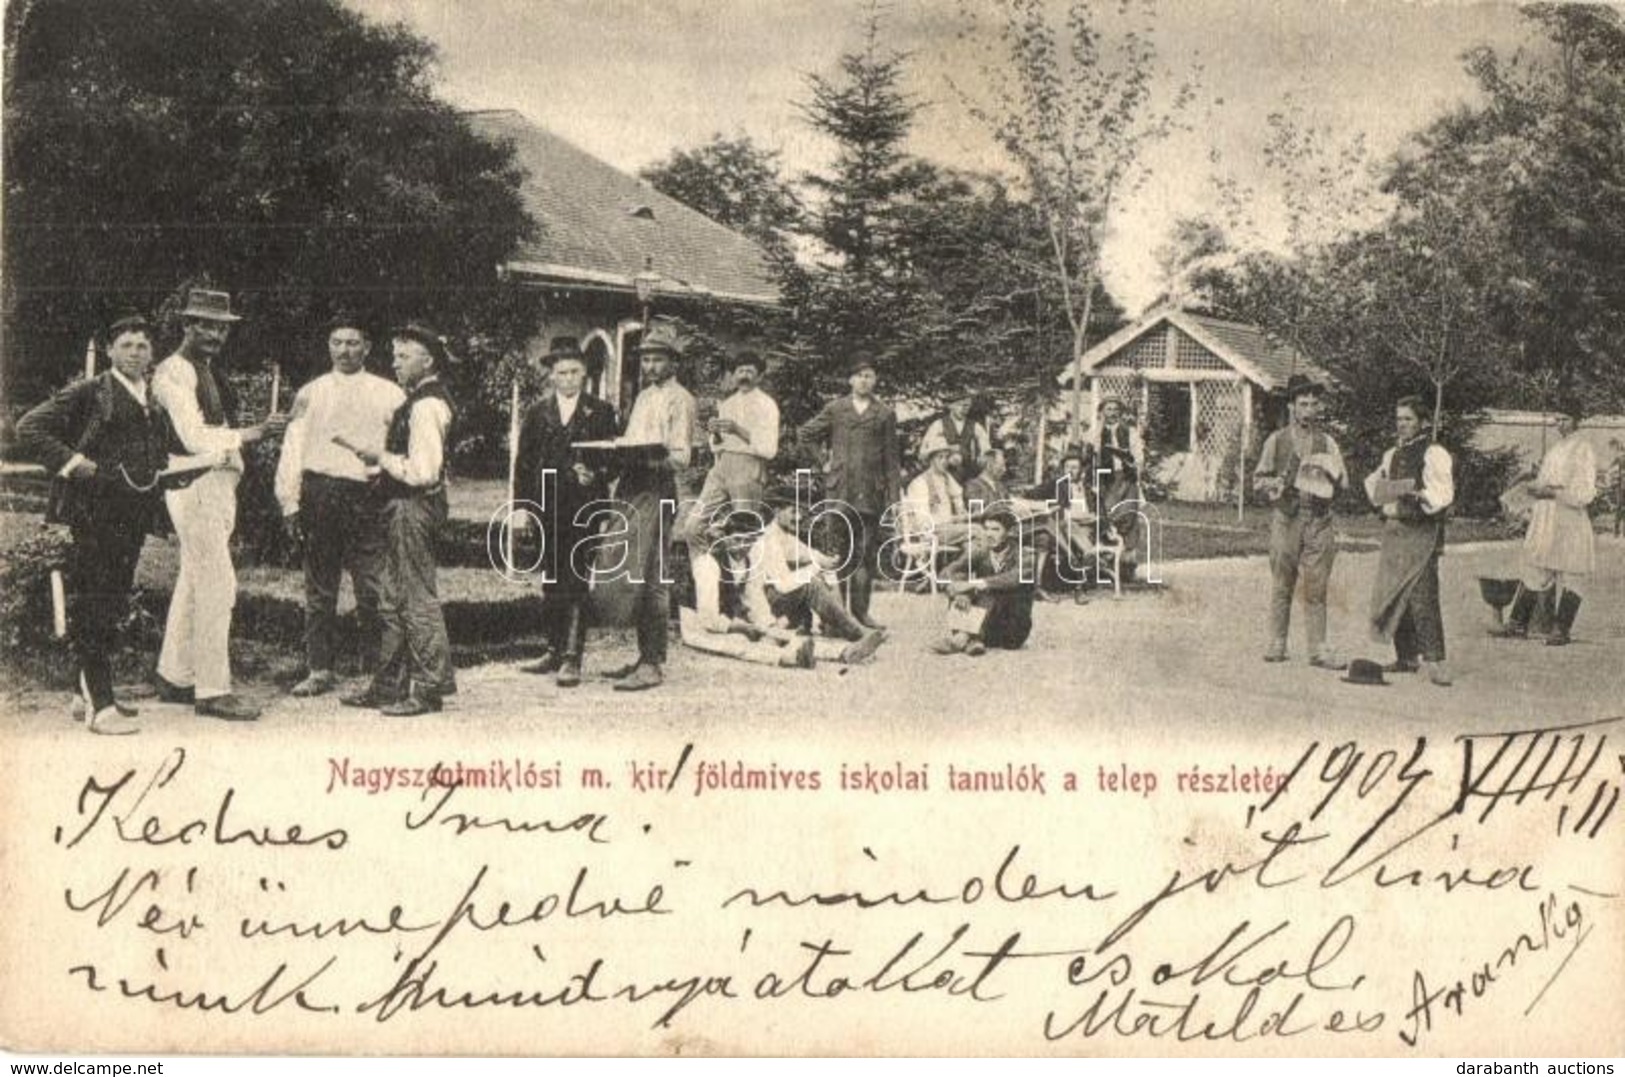 darabanth
Nagyszentmiklósi m. kir. földmives iskolai tanulók a telep részletén
1904 VIII 11
Kedves Irma.
Név ünnepedre minden jót kívá
nunk. Mindnyájatokat csokol,
Matild és Aranka
www.delcampe.net
darabanth auctions